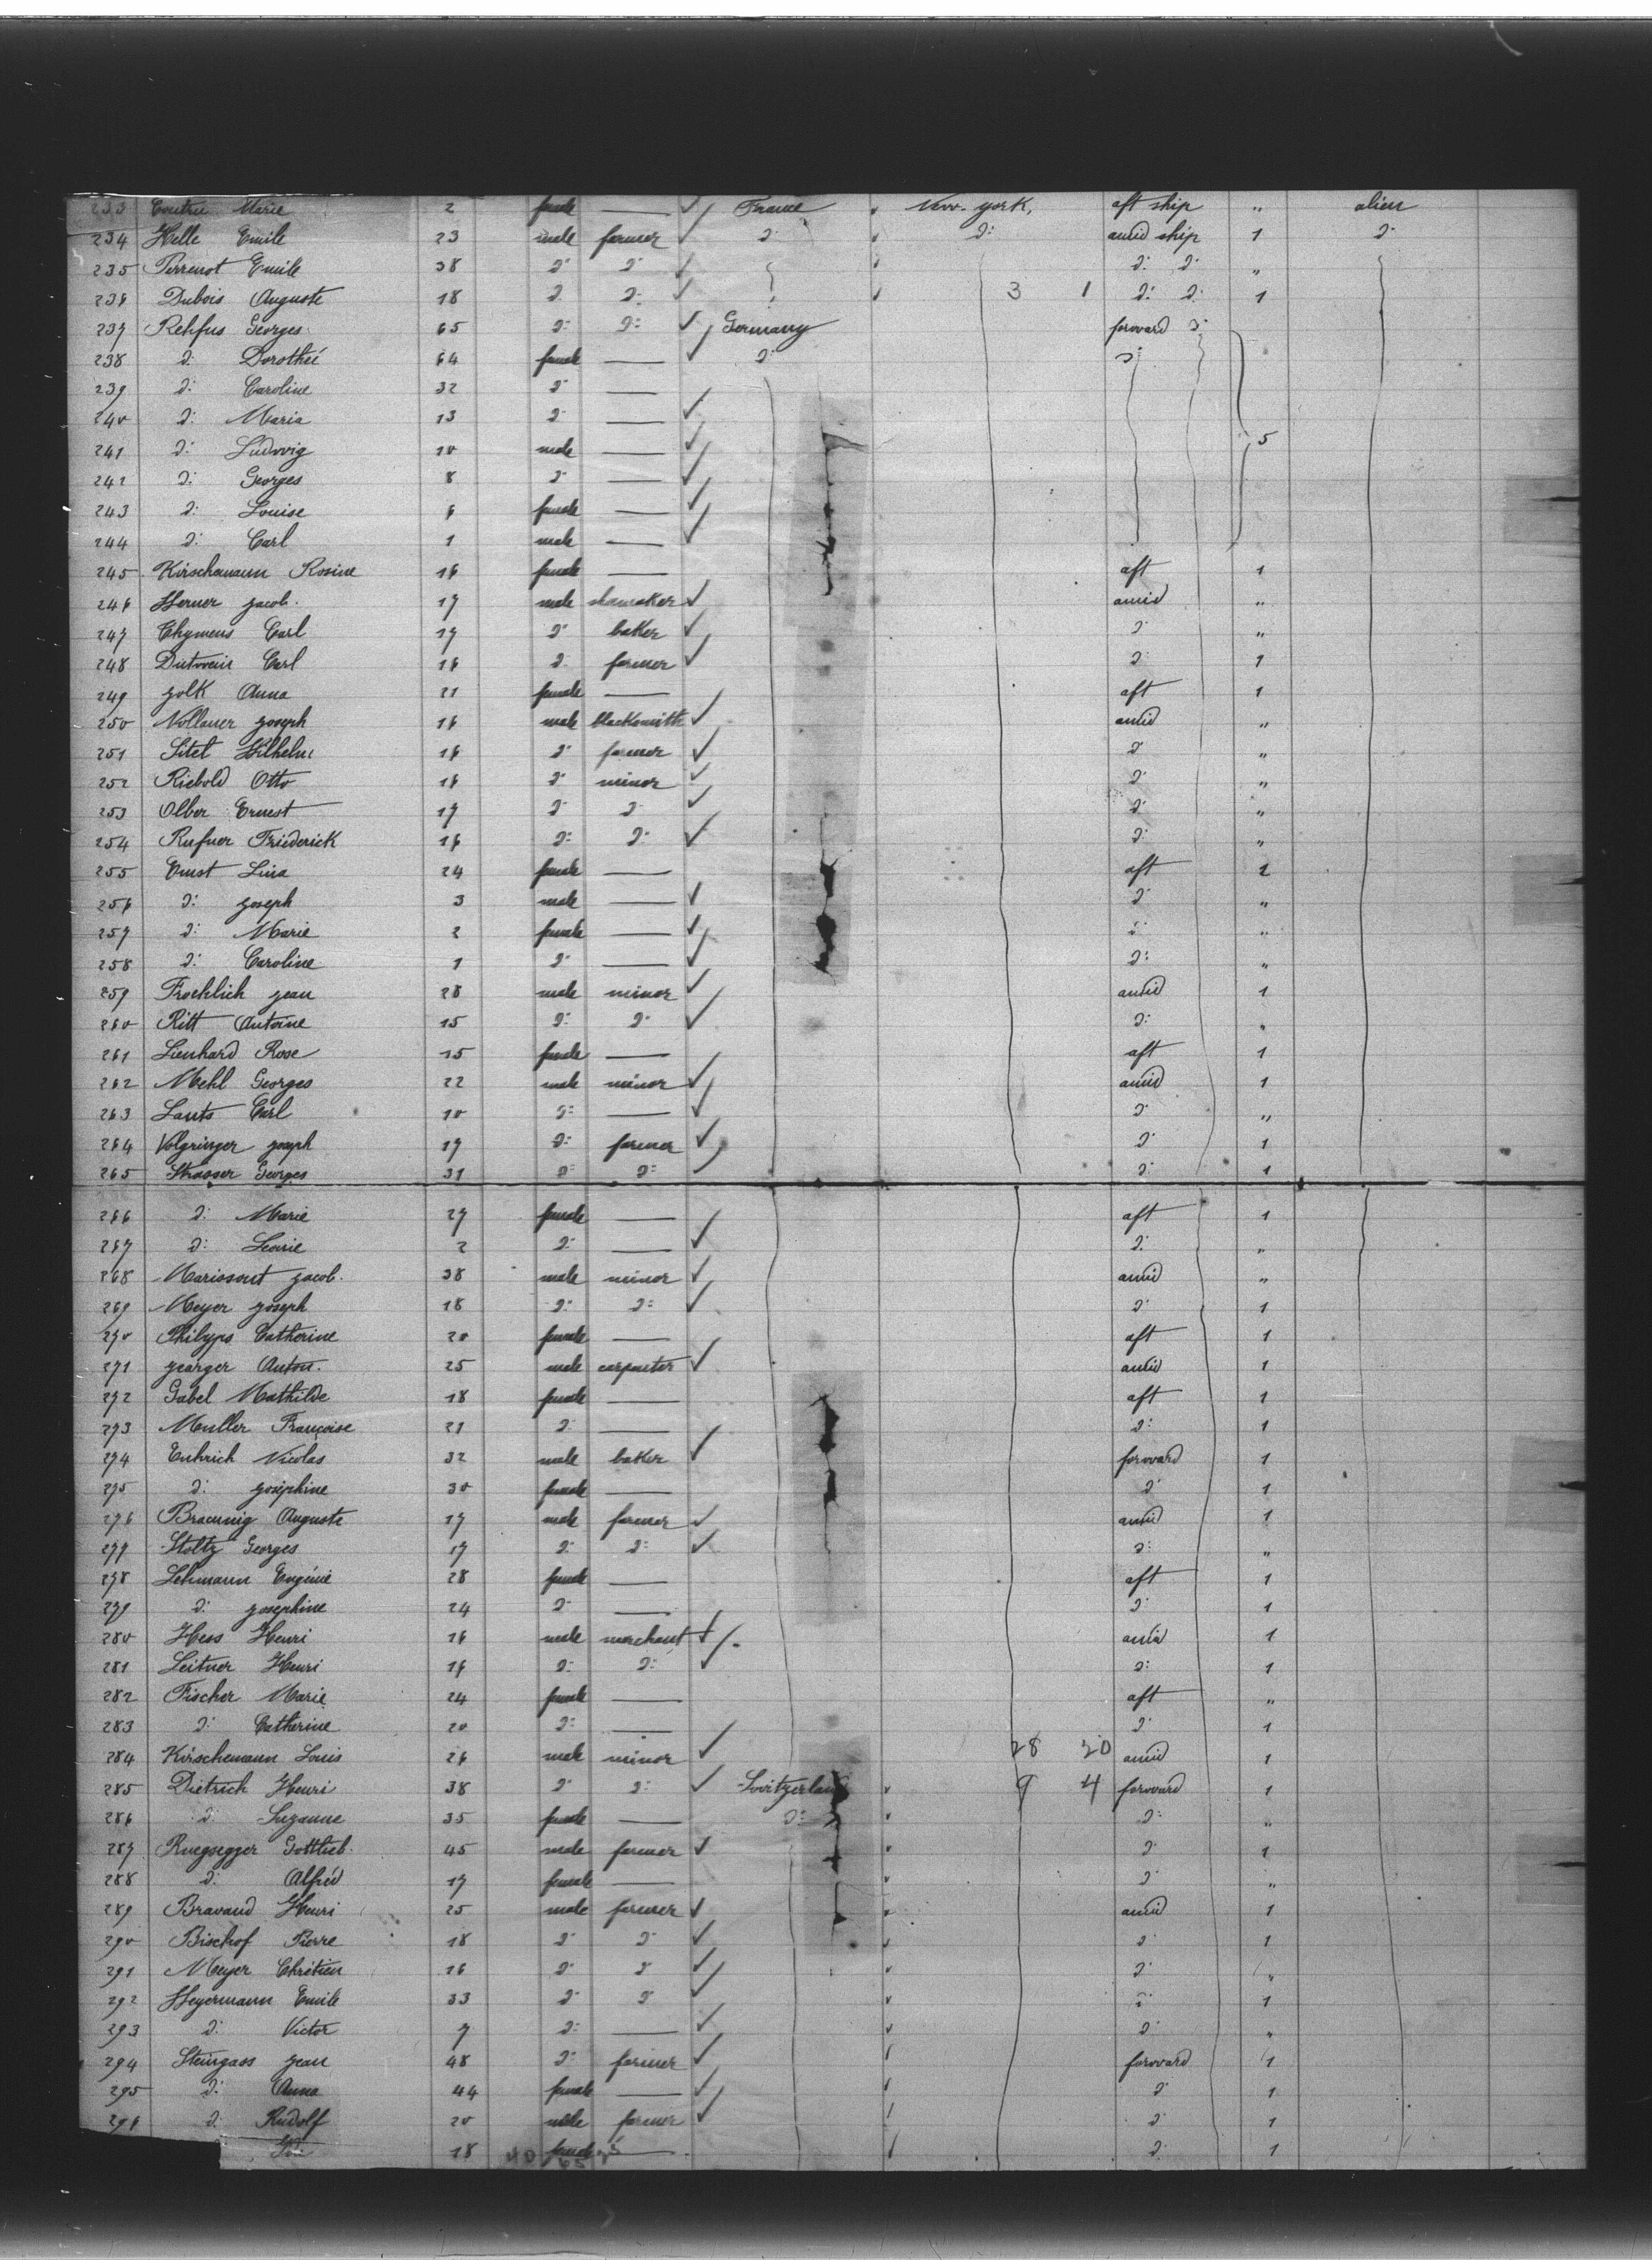 233 Coutru Marie 2 female — France New-york, aft ship " alien
234 Helle Emile 23 male farmer d: d: amid ship 1 d:
235 Perrenot Emile 38 d: d: d: d: "
236 Dubois Auguste 18 d: d: 3 1 d: d: 1
237 Rehfus Georges 65 d: d: Germany forward d:
238 d: Dorothée 64 female — d: d:
239 d: Caroline 32 d: —
240 d: Maria 13 d: —
241 d: Ludwig 10 male — 5
242 d: Georges 8 d: —
243 d: Louise 6 female —
244 d: Carl 1 male —
245 Kirschemann Rosine 16 female — aft 1
246 Herner Jacob. 17 male shoemaker amid "
247 Thymens Carl 17 d: baker d: "
248 Carl 16 d: farmer d: 1
249 Jolk Anna 21 female — aft 1
250 Nollauer Joseph 16 male blacksmith amid "
251 Sitet Wilhelm 16 d: farmer d: "
252 Riebold Otto 16 d: minor d: "
253 Olber Ernest 17 d: d: d: "
254 Rufner Friederick 16 d: d: d: "
255 Ernst Lina 24 female — aft 1
256 d: Joseph 3 male — d: "
257 d: Marie 2 female — d: "
258 d: Caroline 1 d: — d: "
259 Froehlich Jean 28 male minor amid 1
260 Ritt Antoine 15 d: d: d: "
261 Lienhard Rose 15 female — aft 1
262 Mehl Georges 22 male minor amid 1
263 Lantz Carl 10 d: — d: "
264 Volgringer Joseph 17 d: farmer d: 1
265 Strasser Georges 31 d: d: d: 1
266 d: Marie 27 female — aft 1
267 d: Leonie 2 d: — d: "
268 Mariosout Jacob. 38 male minor amid "
269 Meyer Joseph 18 d: d: d: 1
270 Philyps Catherine 20 female — aft 1
271 Jearger Anton. 25 male carpenter amid 1
272 Gabel Mathilde 18 female — aft 1
273 Muller Françoise 21 d: — d: 1
274 Enhrich Nicolas 32 male baker forward 1
275 d: Joséphine 30 female — d: 1
276 Braeunig Auguste 17 male farmer amid 1
277 Stoltz Georges 17 d: d: d: "
278 Lehmann Eugénie 28 female — aft 1
279 d: Josephine 24 d: — d: 1
280 Hess Henri 16 male merchant amid 1
281 Leitner Henri 16 d: d: d: 1
282 Fischer Marie 24 female — aft "
283 d: Catherine 20 d: — d: 1
284 Kirschemann Louis 26 male minor 28 20 amid 1
285 Dietrich Henri 38 d: d: Switzerland 9 4 forward 1
286 d: Suzanne 35 female — d: d: "
287 Ruegsegger Gottlieb. 45 male farmer d: 1
288 d: Alfred 17 female — d: "
289 Bravand Henri 25 male farmer amid 1
290 Bischof Pierre 18 d: d: d: 1
291 Meyer Chrétien 16 d: d: d: "
292 Heyermann Emile 33 d: d: d: 1
293 d: Victor 7 d: — d: "
294 Steingass Jean 48 d: farmer forward 1
295 d: Anna 44 female — d: 1
296 d: Rudolf 20 male farmer d: 1
18 female — d: 1